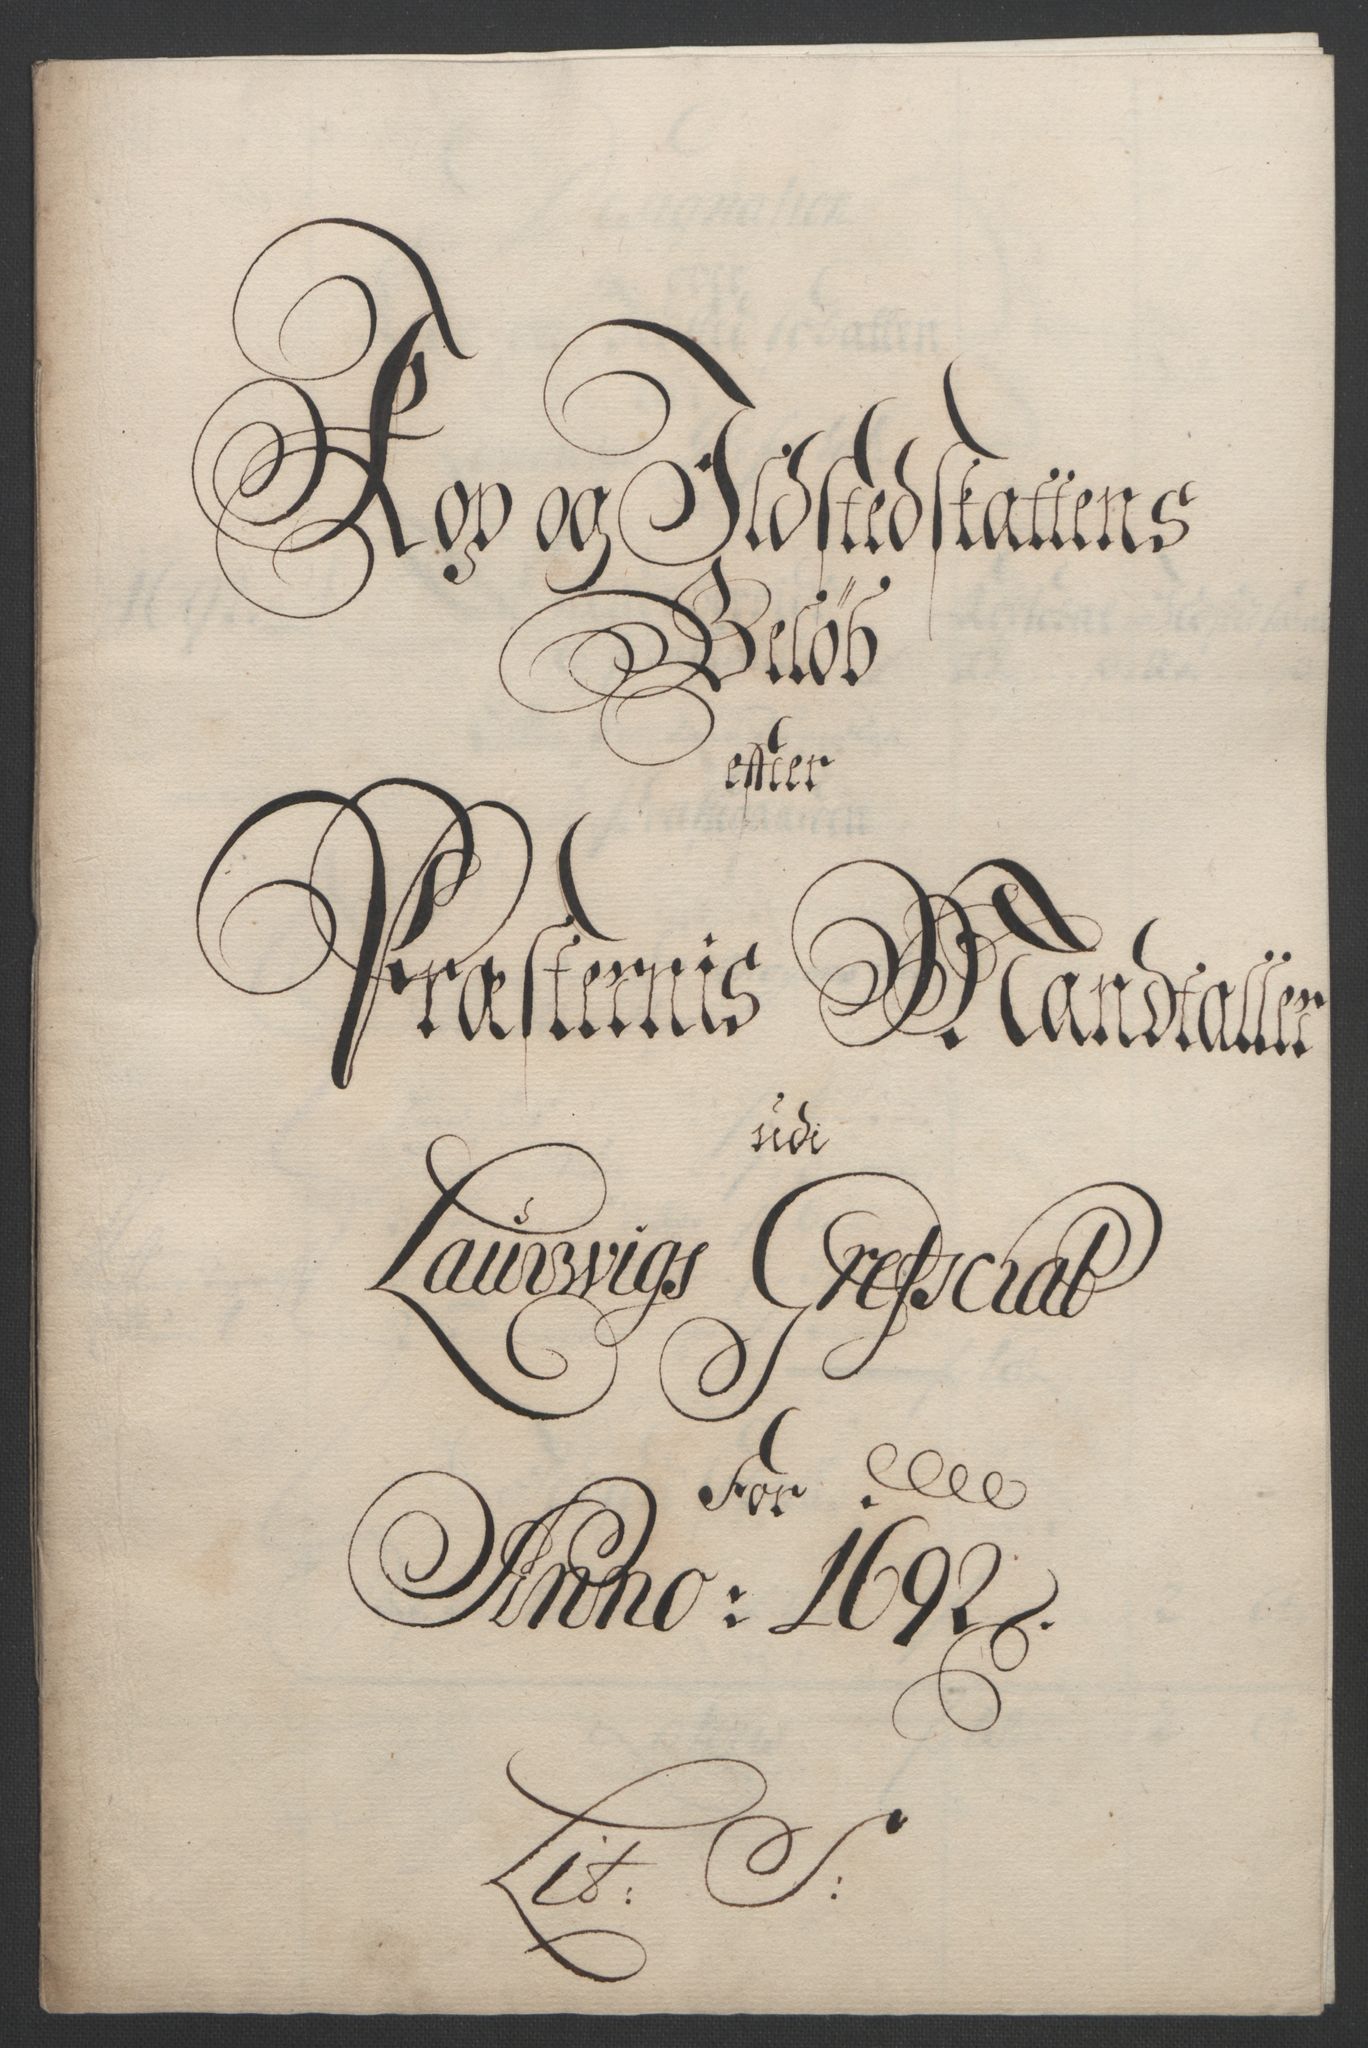 Kop og Ildstedskattens
Belöb
effter
Præsternis Mandtaller
udi
Laurwigs Grefschab
For
Anno: 1692.
Lit: S: